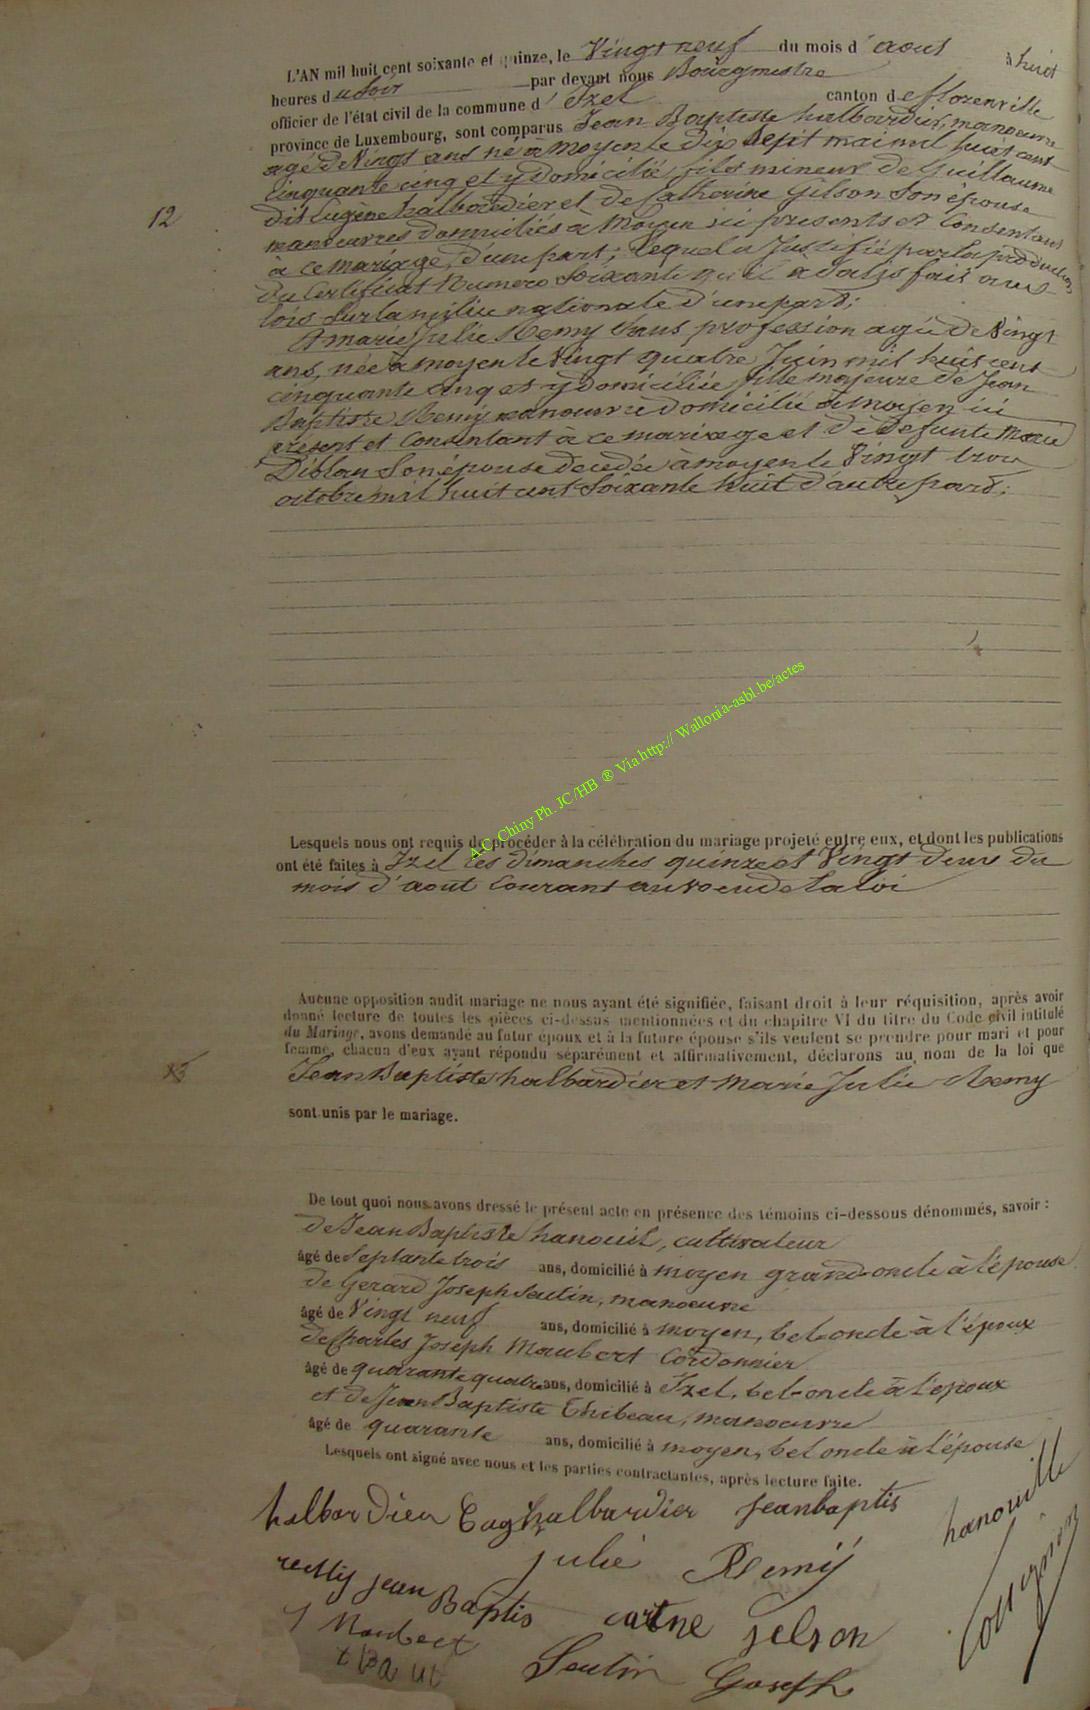 L'AN mil huit cent soixante et quinze, le Vingt neuf du mois d'aout à huit
heures du soir par devant nous Bourgmestre
officier de l'état civil de la commune d'Izel canton de florenville
province de Luxembourg, sont comparus Jean Baptiste halbardier, manoeuvre
agé de Vingt ans né à moyen le dix Sept mai mil huit cent
Cinquante cinq et y domicilié fils mineur de Guillaume
12
dit Eugène halbardier et de Catherine Gilson Son épouse
manoeuvres domiciliés à Moyen ici presents et Consentans
à ce mariage, d'une part; lequel a Justifié par la production
du Certificat Numero Soixante qu'il a Satisfait aux
lois Sur la milice nationale d'une part;
& marie Julie Remy Sans profession agée de Vingt
ans, née à moyen le Vingt quatre Juin mil huit cent
cinquante cinq et y domiciliée fille majeure de Jean
Baptiste Remy manouvre domicilié à moyen ici
present et Consentant à ce mariage et de defunte Marie
Son épouse decedée à moyen le Vingt trois
octobre mil huit cent Soixante huit d'autre part;
A.C. Chiny Ph. JC/HB ® Via http:// Wallonia-asbl.be/actes
Lesquels nous ont requis de procéder à la célébration du mariage projeté entre eux, et dont les publications
ont été faites à Izel les dimanches quinze et Vingt deux du
mois d'aout Courant au voeu de la loi
Aucune opposition audit mariage ne nous ayant été signifiée, faisant droit à leur réquisition, après avoir
donné lecture de toutes les pièces ci-dessus mentionnées et du chapitre VI du titre du Code civil intitulé
du Mariage, avons demandé au futur époux et à la future épouse s'ils veulent se prendre pour mari et pour
femme, chacun d'eux ayant répondu séparément et affirmativement, déclarons au nom de la loi que
Jean Baptiste halbardier et Marie Julie Remy
sont unis par le mariage.
De tout quoi nous avons dressé le présent acte en présence des témoins ci-dessous dénommés, savoir :
de Jean Baptiste hanouil, cultivateur
âgé de Septante trois ans, domicilié à moyen grand-oncle à l'épouse
de Gerard Joseph Seutin, manoeuvre
âgé de Vingt neuf ans, domicilié à moyen, bel-oncle à l'époux
de Charles Joseph Maubert Cordonnier
âgé de quarante quatre ans, domicilié à Izel, bel-oncle à l'époux
et de Jean Baptiste Thibeau, manoeuvre
âgé de quarante ans, domicilié à moyen, bel oncle à l'épouse
Lesquels ont signé avec nous et les parties contractantes, après lecture faite.
halbardier halbardier Jeanbaptis
hanouille
julie Remy
remy jean Baptis
jelson
Maubert
Seutin Joseph